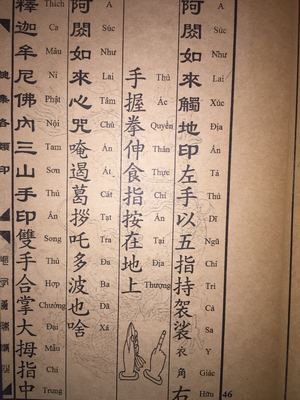 阿閦如來觸地印左手以五指持袈裟衣角右
A Súc Như Lai Xúc Địa Ấn Tả Thủ Dĩ Ngũ Chỉ Trì Ca Sa Y Giác Hữu
手握拳伸食指按在地上
Thủ Ác Quyền Thân Thực Chỉ Án Tại Địa Thượng
阿閦如來心咒唵遏葛拶吒多波也啥
A Súc Như Lai Tâm Chú Án Át Cát Tạt Tra Đa Ba Dã Xá
釋迦牟尼佛內三山手印雙手合掌大拇指中
Thích Ca Mâu Nỉ Phật Nội Tam Sơn Thủ Ấn Song Thủ Hợp Chưởng Đại Mẫu Chỉ Trung
集各類印
46